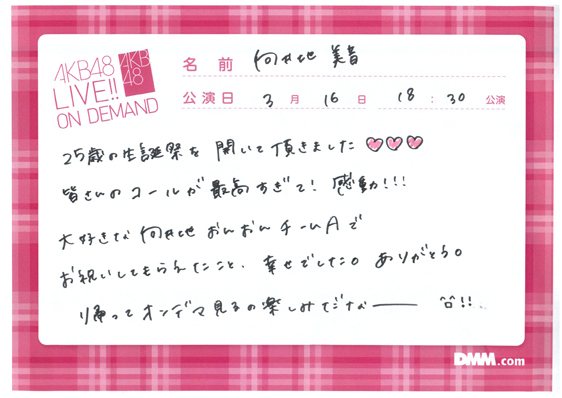 AKB48
LIVE!!
ON DEMAND
AKB
48
名前 向井地 美音
公演日 3月16日 18:30公演
25歳の生誕祭を開いて頂きました♡♡♡
皆さんのコールが最高すぎて!感動!!!
大好きな向井地おんおんチームAで
お祝いしてもらえたこと、幸せでした。ありがとう。
帰ってオンデマ見るの楽しみだなー ^^!!
DMM.com